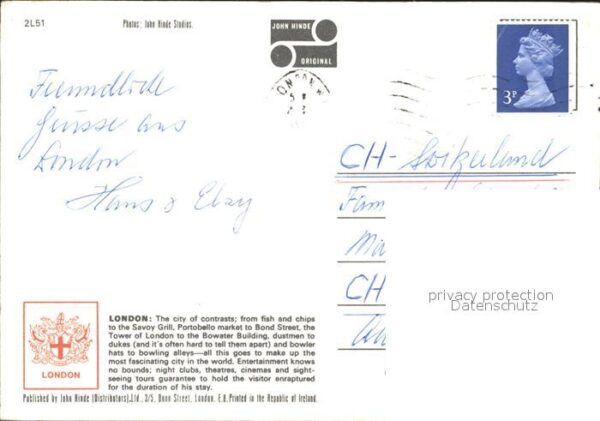 2L51
Photos; John Hinde Studios.
JOHN HINDE
ORIGINAL
3P
Freundliche
Grüsse aus
London
Hans &
CH-
Fam
CH
privacy protection
Datenschutz
LONDON: The city of contrasts; from fish and chips
to the Savoy Grill, Portobello market to Bond Street, the
Tower of London to the Bowater Building, dustmen to
dukes (and it's often hard to tell them apart) and bowler
hats to bowling alleys—all this goes to make up the
most fascinating city in the world. Entertainment knows
no bounds; night clubs, theatres, cinemas and sight-
seeing tours guarantee to hold the visitor enraptured
for the duration of his stay.
LONDON
Published by John Hinde (Distributors),Ltd., 3/5, Boon Street, London. E.8. Printed in the Republic of Ireland.